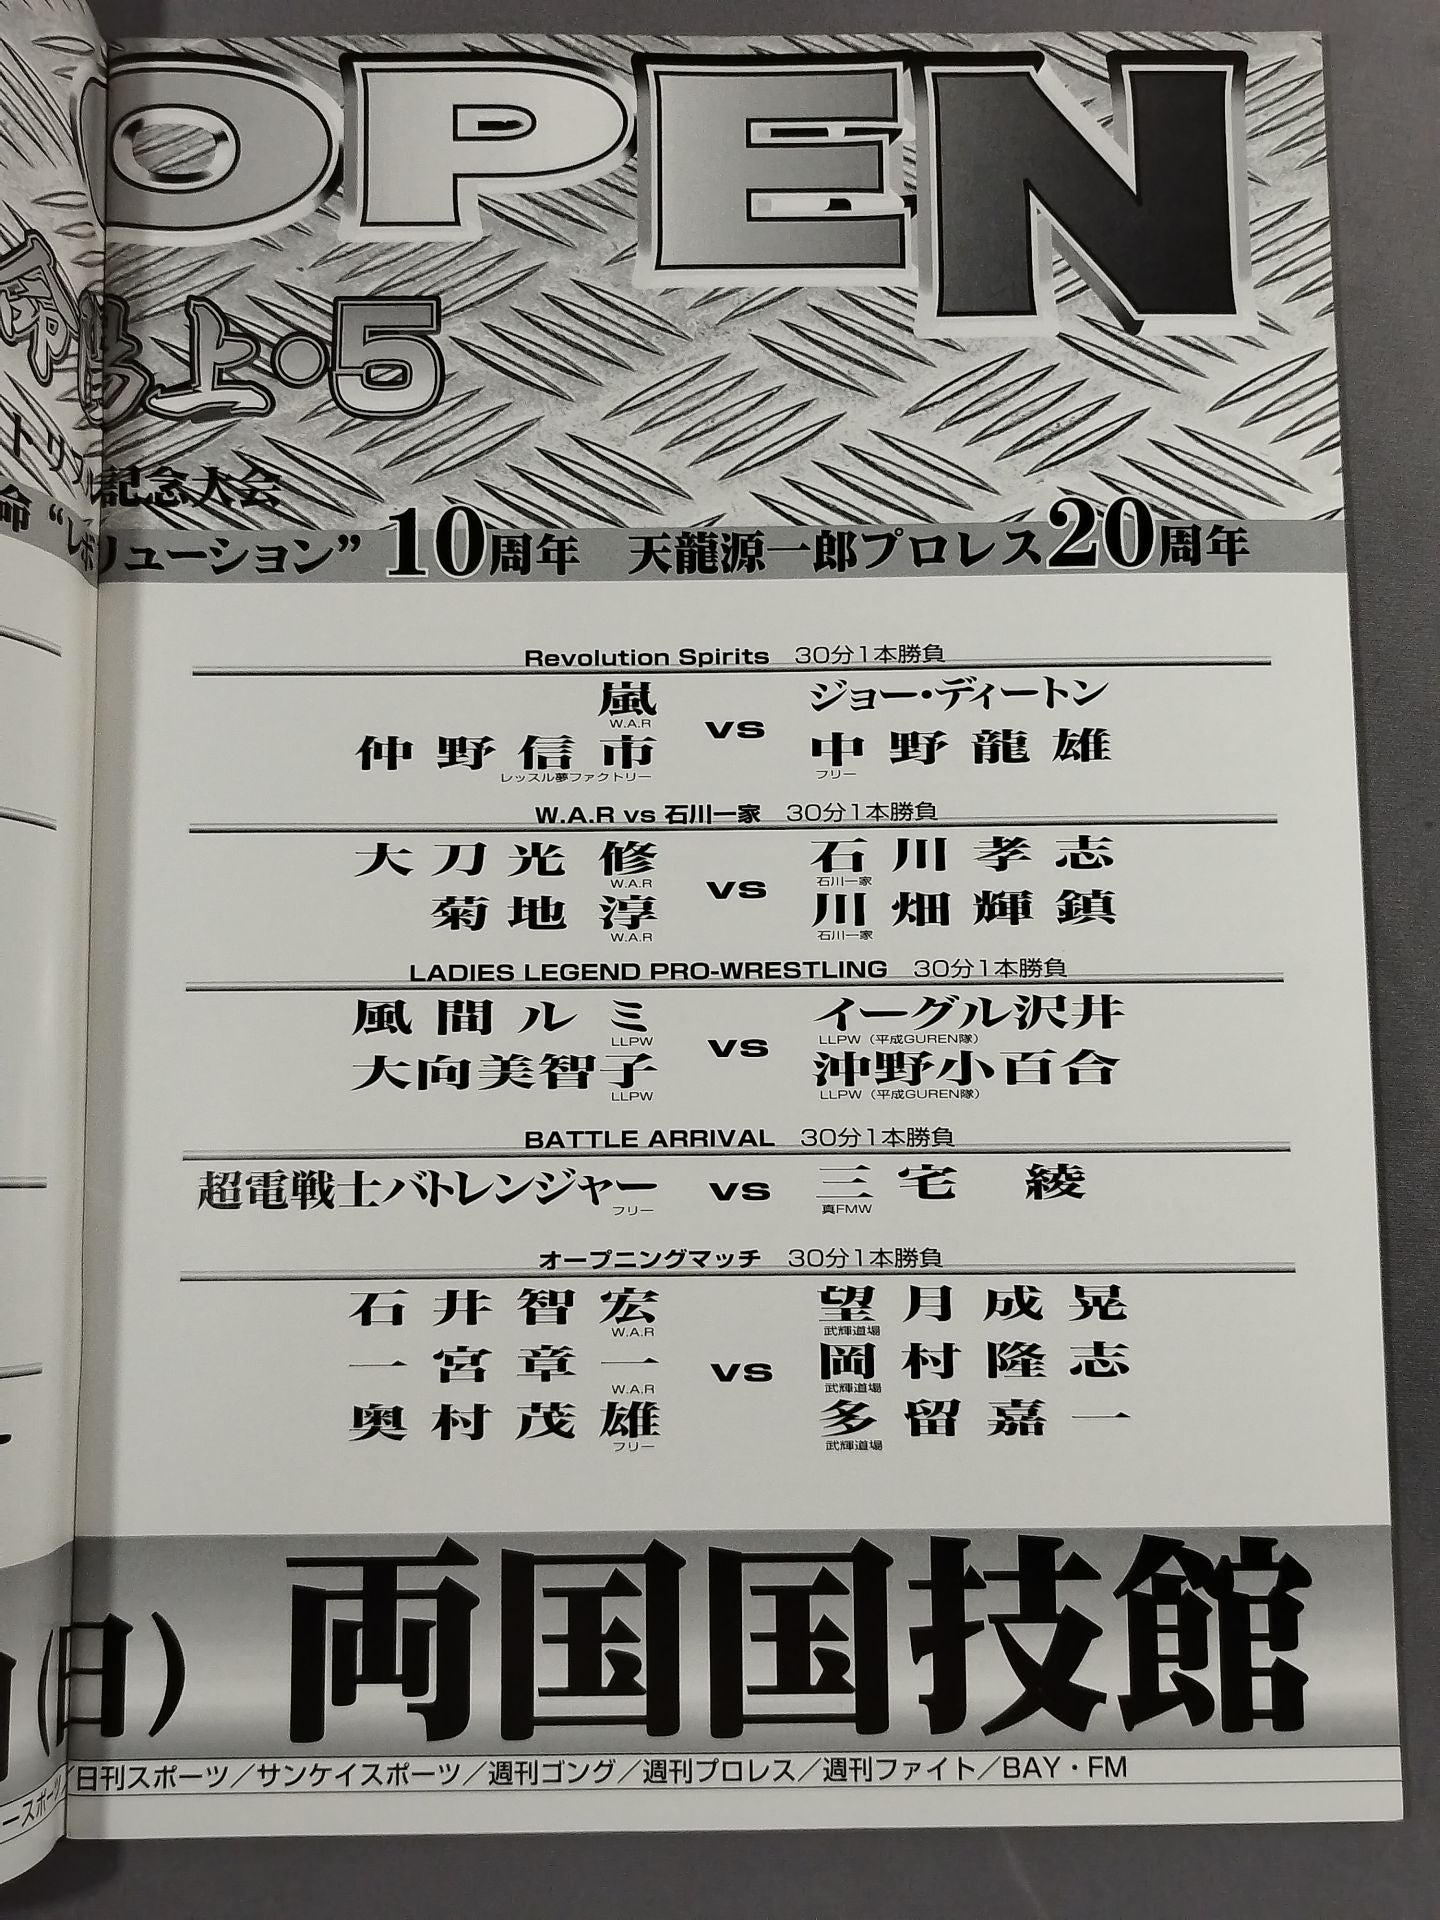 OPEN
命 陽上・5
トリプル記念大会
命 “レボリューション” 10周年 天龍源一郎プロレス20周年
Revolution Spirits 30分1本勝負
嵐 ジョー・ディートン
W.A.R
vs
仲野信市 中野龍雄
レッスル夢ファクトリー フリー
W.A.R vs 石川一家 30分1本勝負
大刀光修 石川孝志
W.A.R 石川一家
vs
菊地淳 川畑輝鎮
W.A.R 石川一家
LADIES LEGEND PRO-WRESTLING 30分1本勝負
風間ルミ イーグル沢井
LLPW LLPW（平成GUREN隊）
vs
大向美智子 沖野小百合
LLPW LLPW（平成GUREN隊）
BATTLE ARRIVAL 30分1本勝負
超電戦士バトレンジャー vs 三宅綾
フリー 真FMW
オープニングマッチ 30分1本勝負
石井智宏 望月成晃
W.A.R 武輝道場
一宮章一 vs 岡村隆志
W.A.R 武輝道場
奥村茂雄 多留嘉一
フリー 武輝道場
（日） 両国国技館
ースポーツ／日刊スポーツ／サンケイスポーツ／週刊ゴング／週刊プロレス／週刊ファイト／BAY・FM